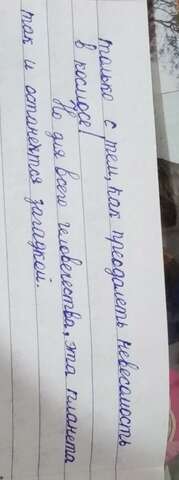 только с тем, как преодолеть невесомость
в космосе!
Но для всего человечества, эта планета
так и останется загадкой.